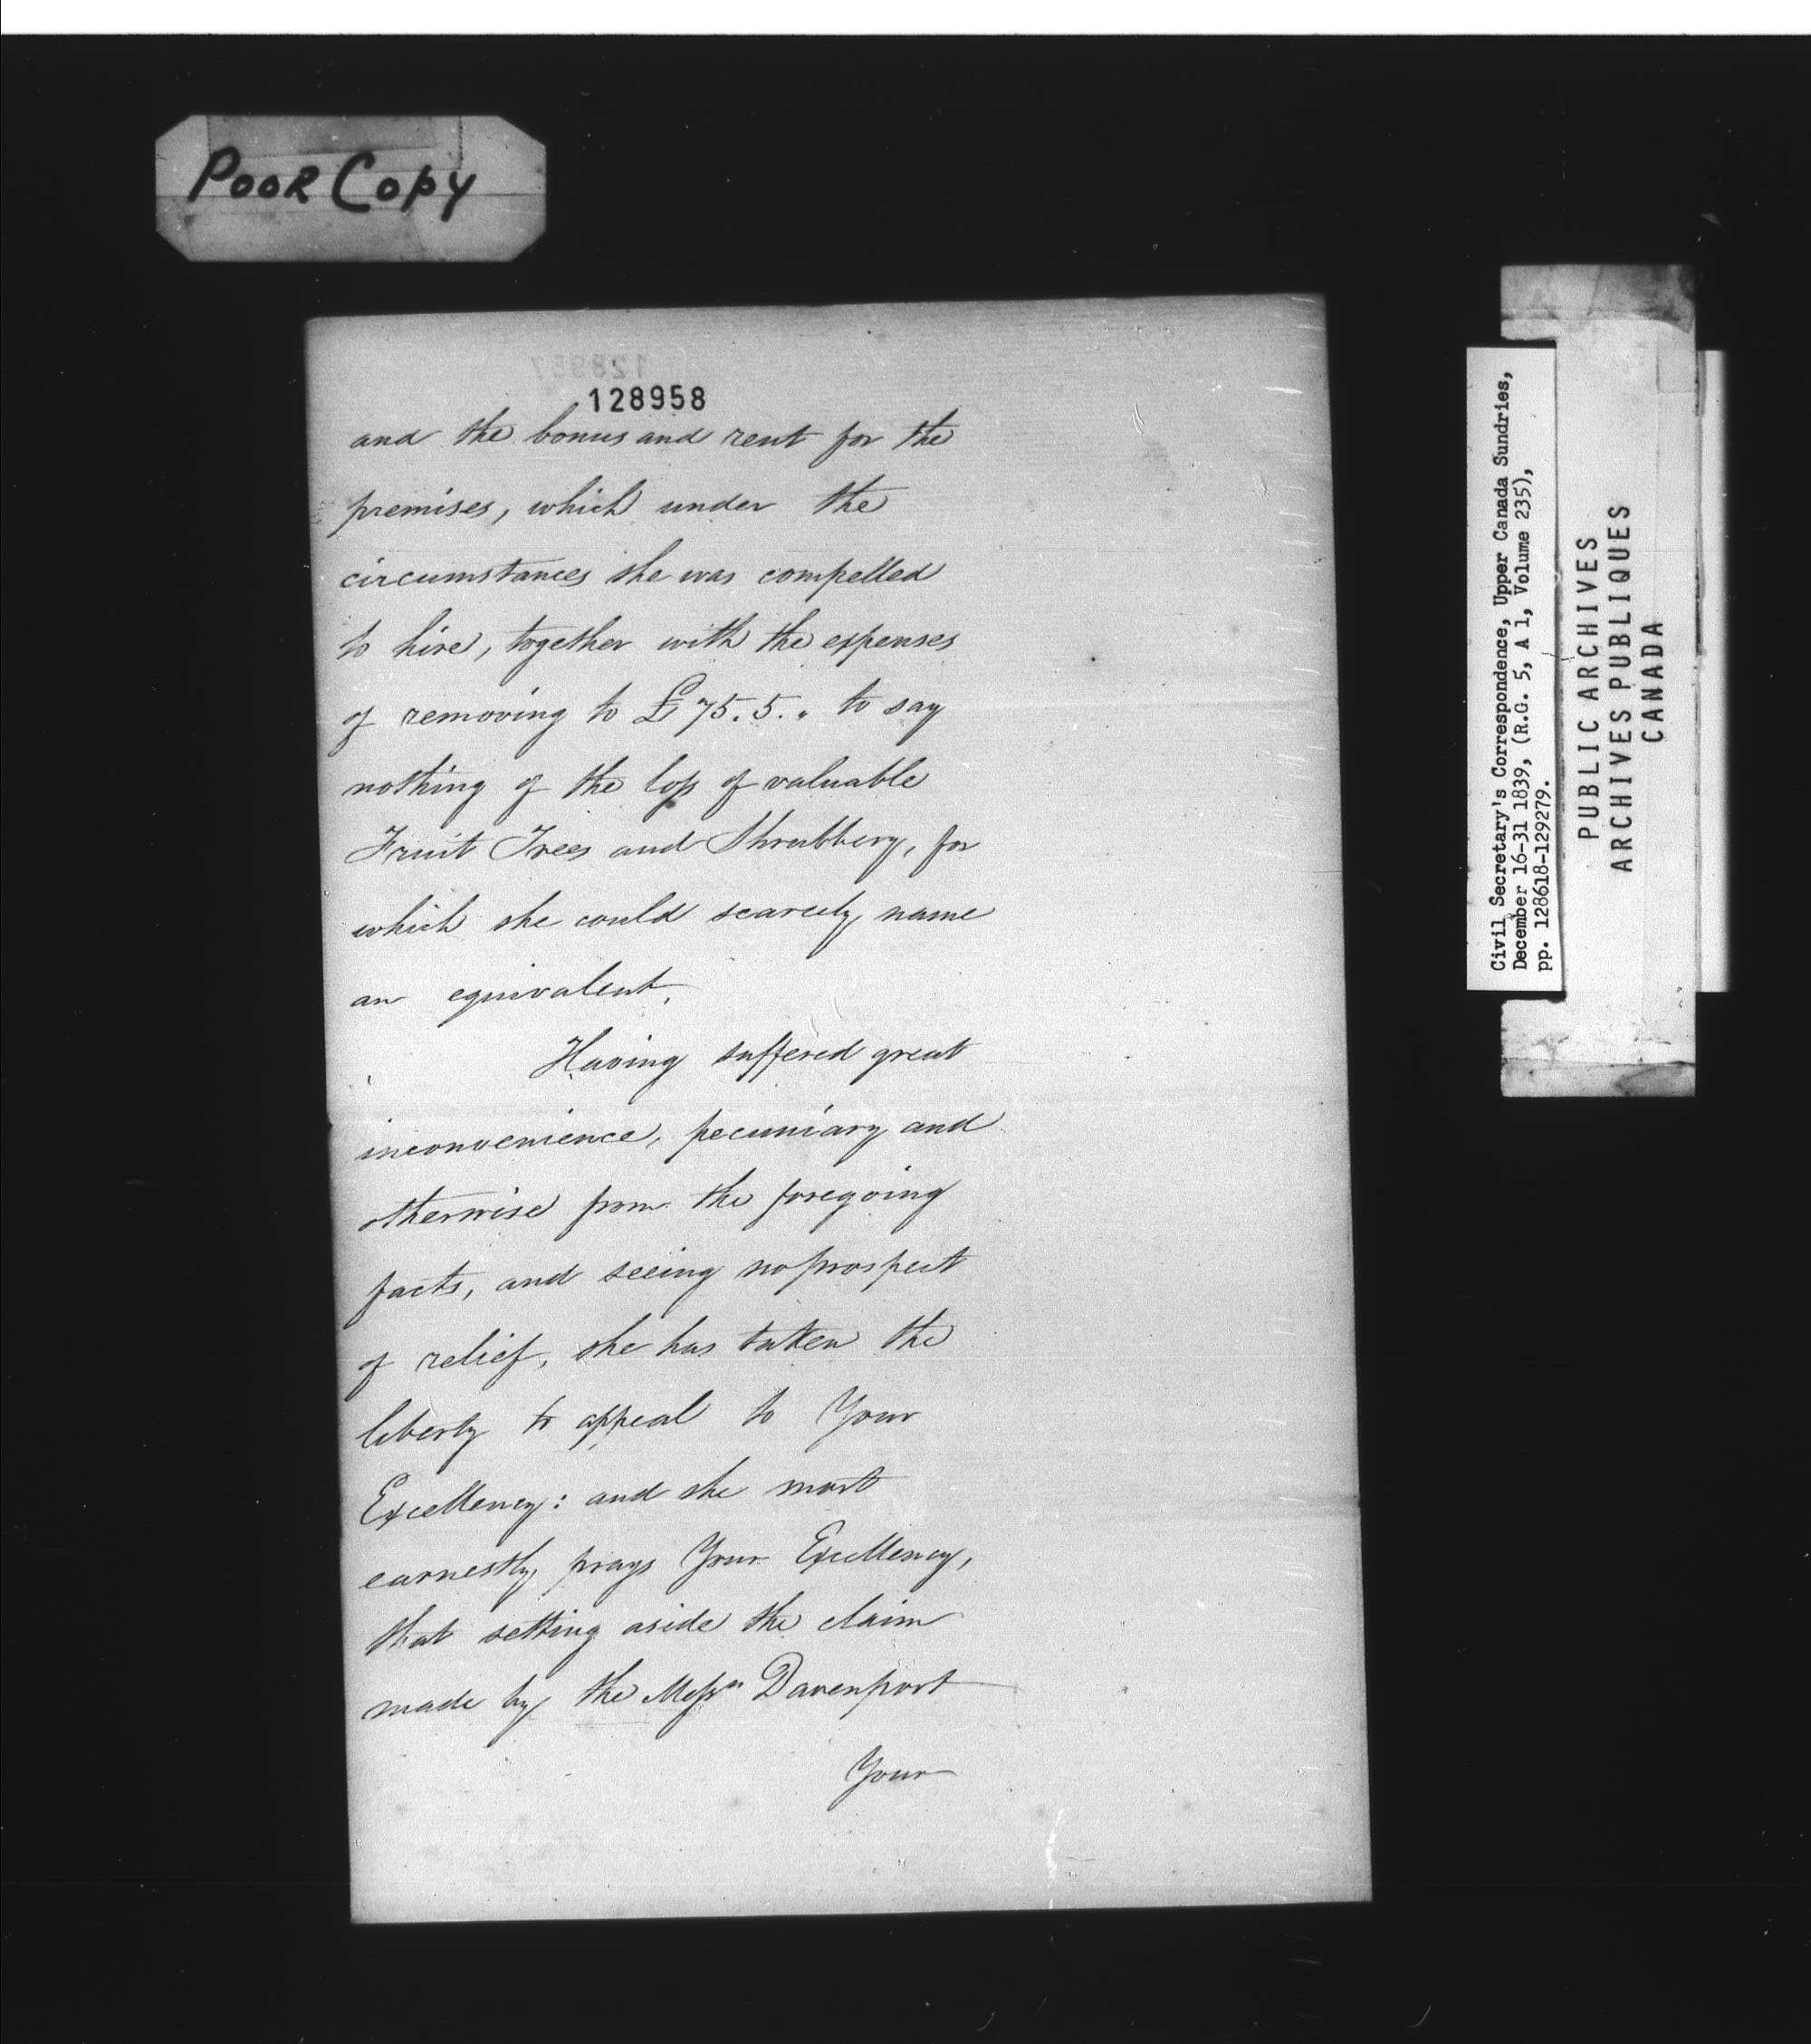 Poor Copy
128957
128958
and the bonus and rent for the
premises, which under the
circumstances she was compelled
to hire, together with the expenses
of removing to £75.5.„ to say
nothing of the loss of valuable
Fruit Trees and Shrubbery, for
which she could scarcely name
an equivalent.
Having suffered great
inconvenience, pecuniary and
otherwise from the foregoing
facts, and seeing no prospect
of relief, she has taken the
liberty to appeal to Your
Excellency: and she most
earnestly prays Your Excellency,
that setting aside the claim
made by the Messrs Davenport
Your
Civil Secretary's Correspondence, Upper Canada Sundries,
December 16-31 1839, (R.G. 5, A 1, Volume 235),
pp. 128618-129279.
PUBLIC ARCHIVES
ARCHIVES PUBLIQUES
CANADA